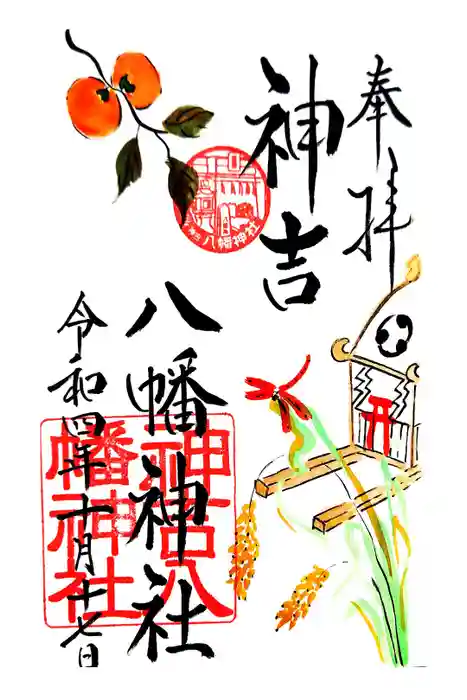 奉拝
神吉
八幡神社
令和四年十月十七日
神吉八
幡神社
八幡神社